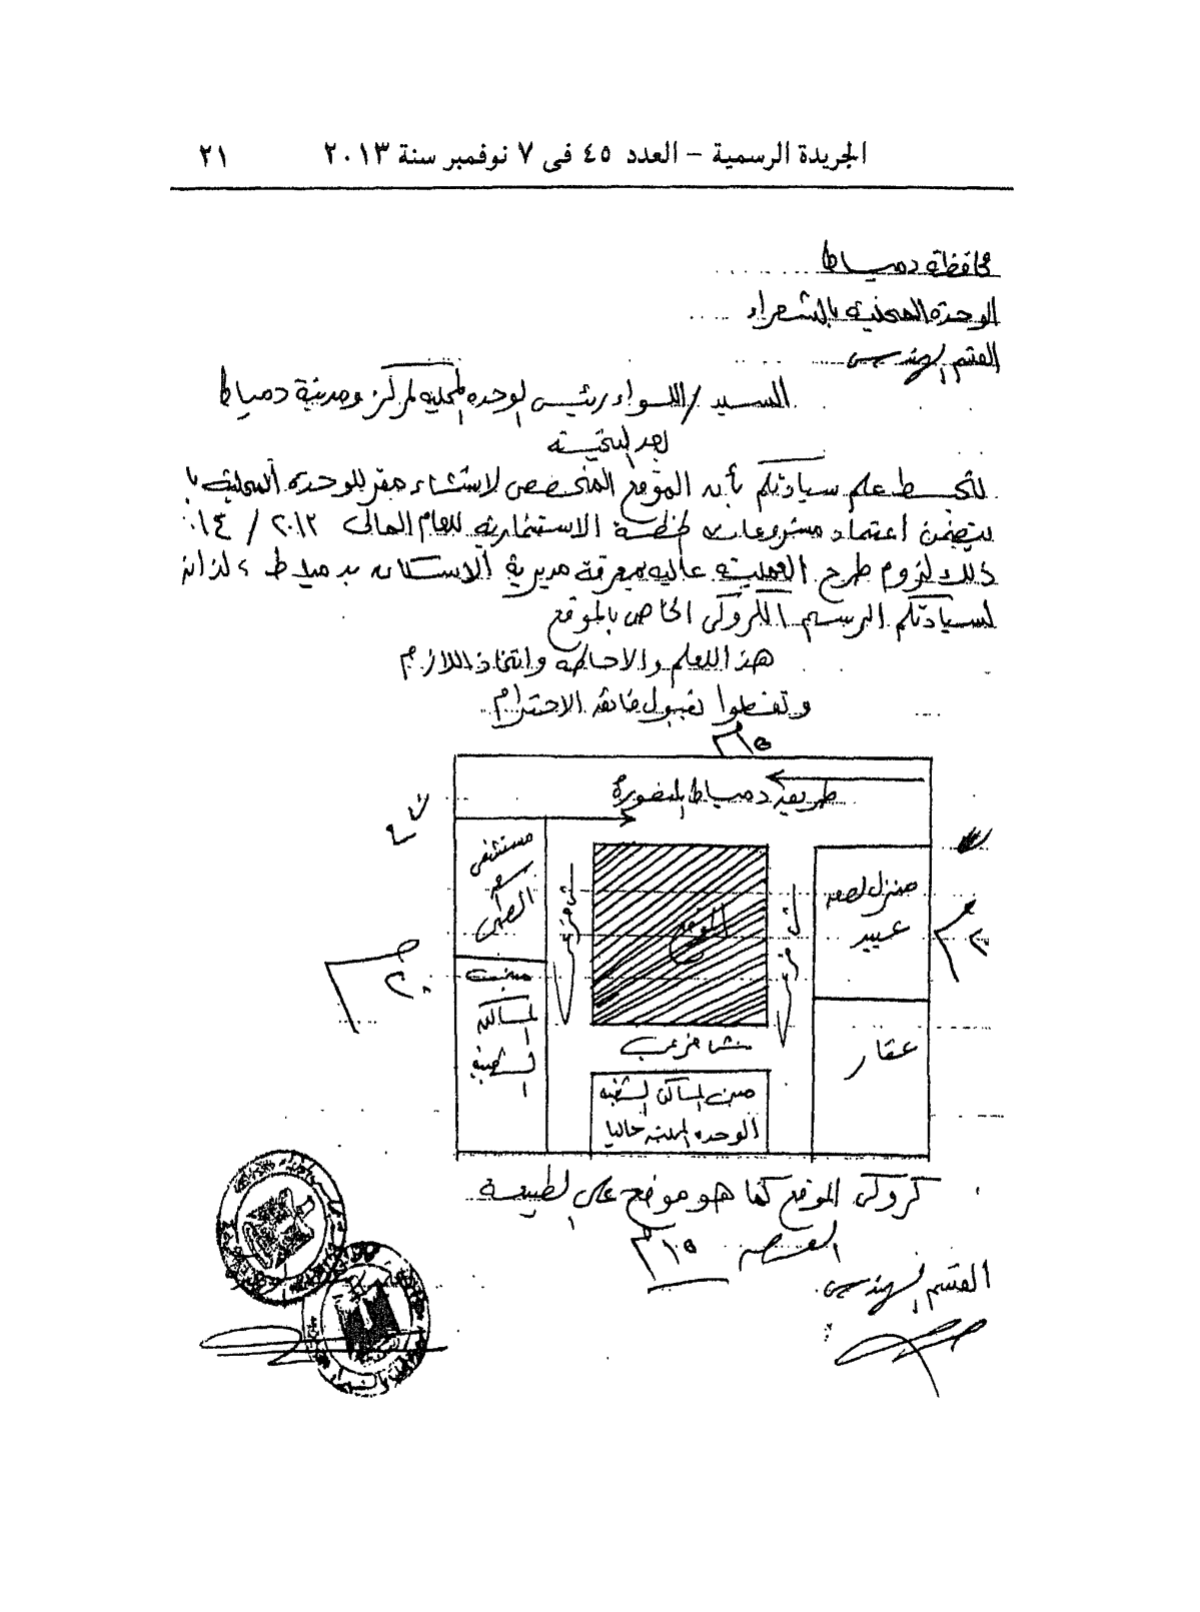 الجريدة الرسمية – العدد ٤٥ فى ٧ نوفمبر سنة ٢٠١٣ ٢١
محافظة دمياط
الوحدة المحلية بالشعراء
القسم الهندسى
السيد / اللواء رئيس الوحده المحليه لمركز ومدينة دمياط
بعد التحيه
لتحيط علم سيادتكم بأنه الموقع المخصص لانشاء مقر للوحده المحلية با
يتضمن اعتماد مشروعات الخطة الاستثمارية للعام المالى ٢٠١٣ / ٠١٤
ذلك لزوم طرح العملية عاليه بمعرفة مديرية الاسكان بدمياط ، لذا
لسيادتكم الرسم الكروكى الخاص بالموقع
هذا للعلم والاحاطه واتخاذ اللازم
وتفضلوا بقبول فائق الاحترام
طريق دمياط المنصورة
مستشفى
الموقع
منزل
عبيد
مبنى
المساكن
الشعبية
عقار
مبنى المساكن الشعبيه
الوحده المحلية حاليا
كروكى الموقع كما هو موقع على الطبيعة
القسم الهندسى